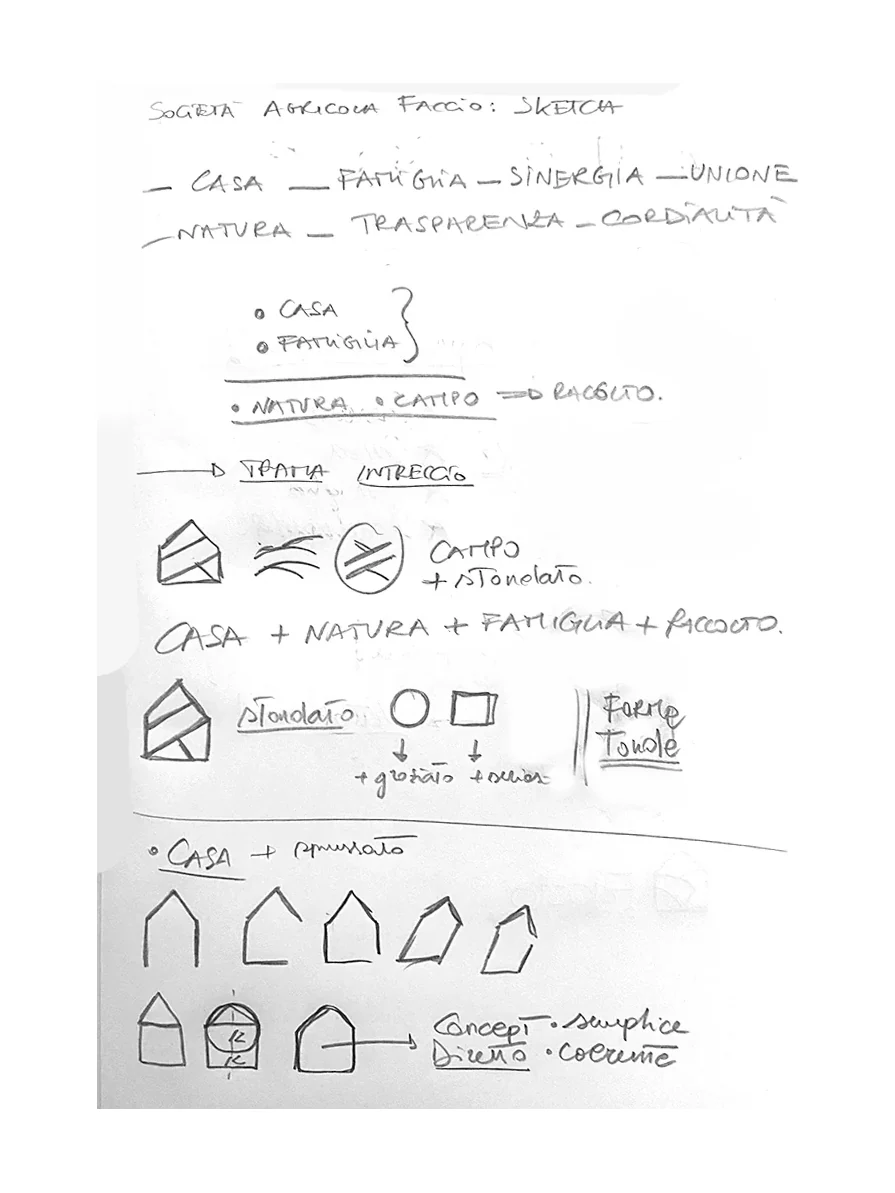 SOCIETÀ AGRICOLA FACCIO: SKETCH
— CASA — FAMIGLIA — SINERGIA — UNIONE
— NATURA — TRASPARENZA — CORDIALITÀ
• CASA
• FAMIGLIA
• NATURA • CAMPO ⇒ RACCOLTO.
→ TRAMA INTRECCIO
CAMPO
+ stondato.
CASA + NATURA + FAMIGLIA + RACCOLTO.
stondato
FORME
TONDE
+ graziato
• CASA +
R
R
Concept • semplice
Diretto • coerente